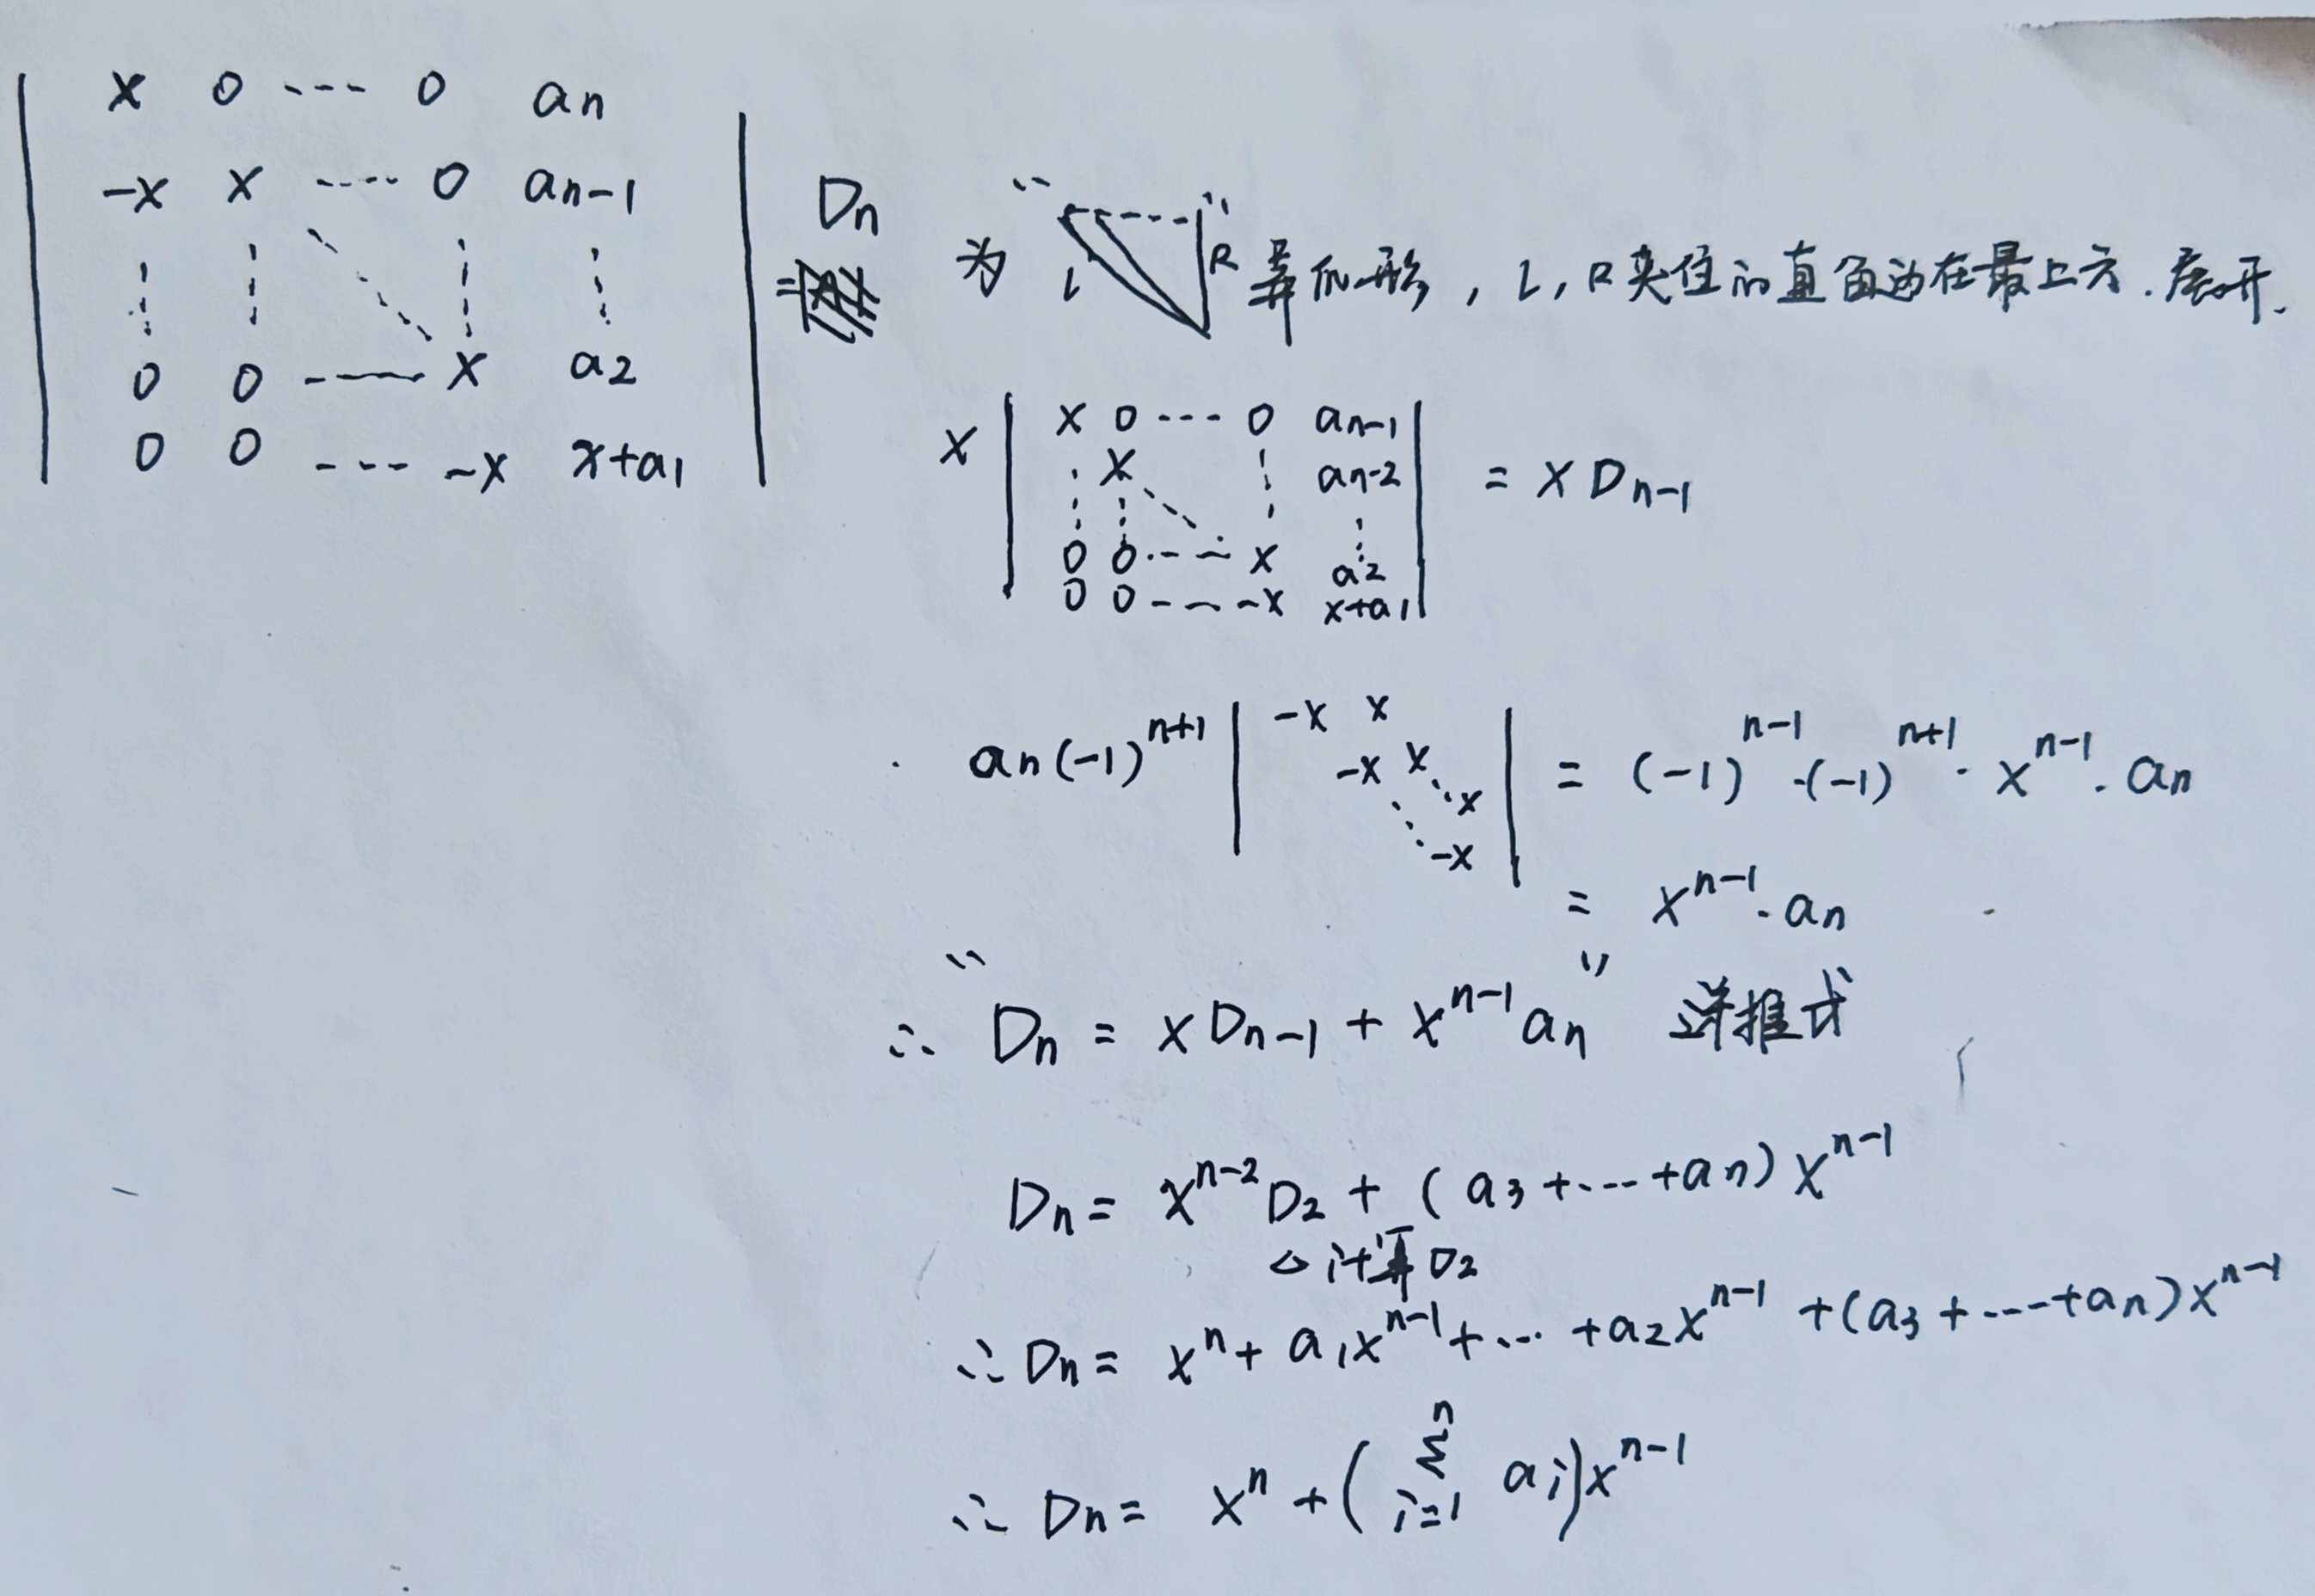 x 0 --- 0 an
-x x ---- 0 an-1
0 0 ---- x a2
0 0 --- -x x+a1
= Dn
为 “ L R ” 异爪形，L，R夹住的直角边在最上方.展开.
x | x 0 --- 0 an-1
x an-2
0 0 --- x a2
0 0 --- -x x+a1 | = x Dn-1
an(-1)^{n+1} | -x x
-x x
x
-x | = (-1)^{n-1}·(-1)^{n+1}· x^{n-1}. an
= x^{n-1}. an
∴ “Dn = x Dn-1 + x^{n-1} an” 递推式
Dn = x^{n-2} D2 + (a3 + --- + an) x^{n-1}
△ 计算 D2
∴ Dn = x^n + a1x^{n-1} + ... + a2x^{n-1} + (a3 + ---- + an) x^{n-1}
∴ Dn = x^n + (Σ_{i=1}^{n} ai) x^{n-1}